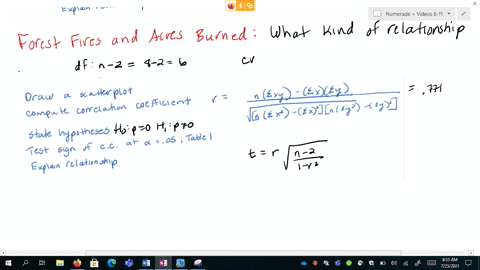 Explain
Numerade > Videos 6-11
Forest Fires and Acres Burned: What Kind of relationship
df: n-2 = 8-2=6 CV
Draw a scatterplot
compute correlation coefficient r = n(Σxy)-(Σx)(Σy) / √[n(Σx²)-(Σx)²][n(Σy²)-(Σy)²] = .771
state hypotheses H₀: p=0 H₁: p≠0
Test sign of c.c. at α=.05, Table I
Explain relationship
t = r √ n-2 / 1-r²
8:55 AM
7/25/2021